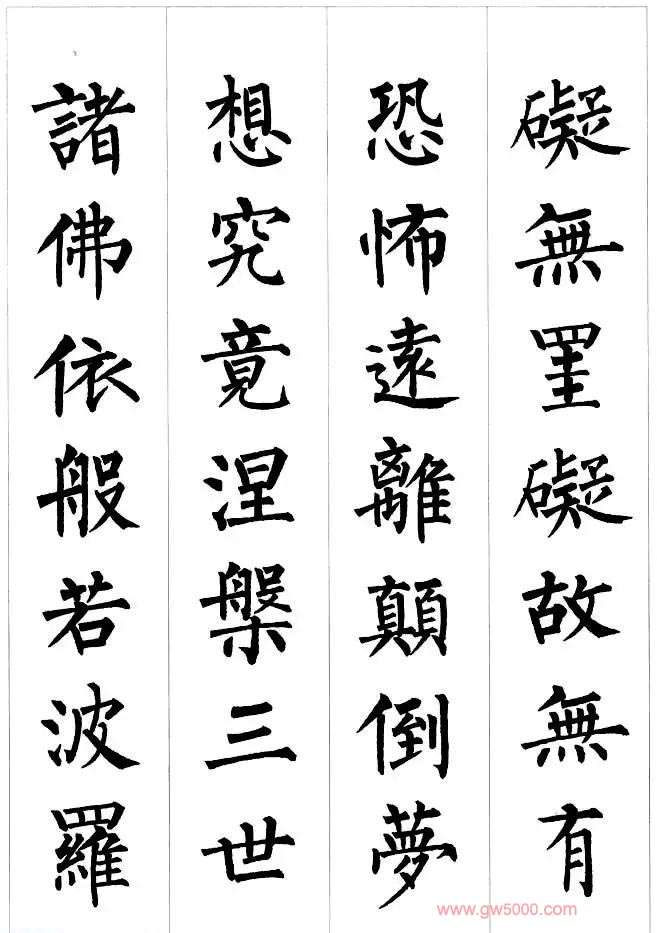 礙無罣礙故無有
恐怖遠離顛倒夢
想究竟涅槃三世
諸佛依般若波羅
www.gw5000.com